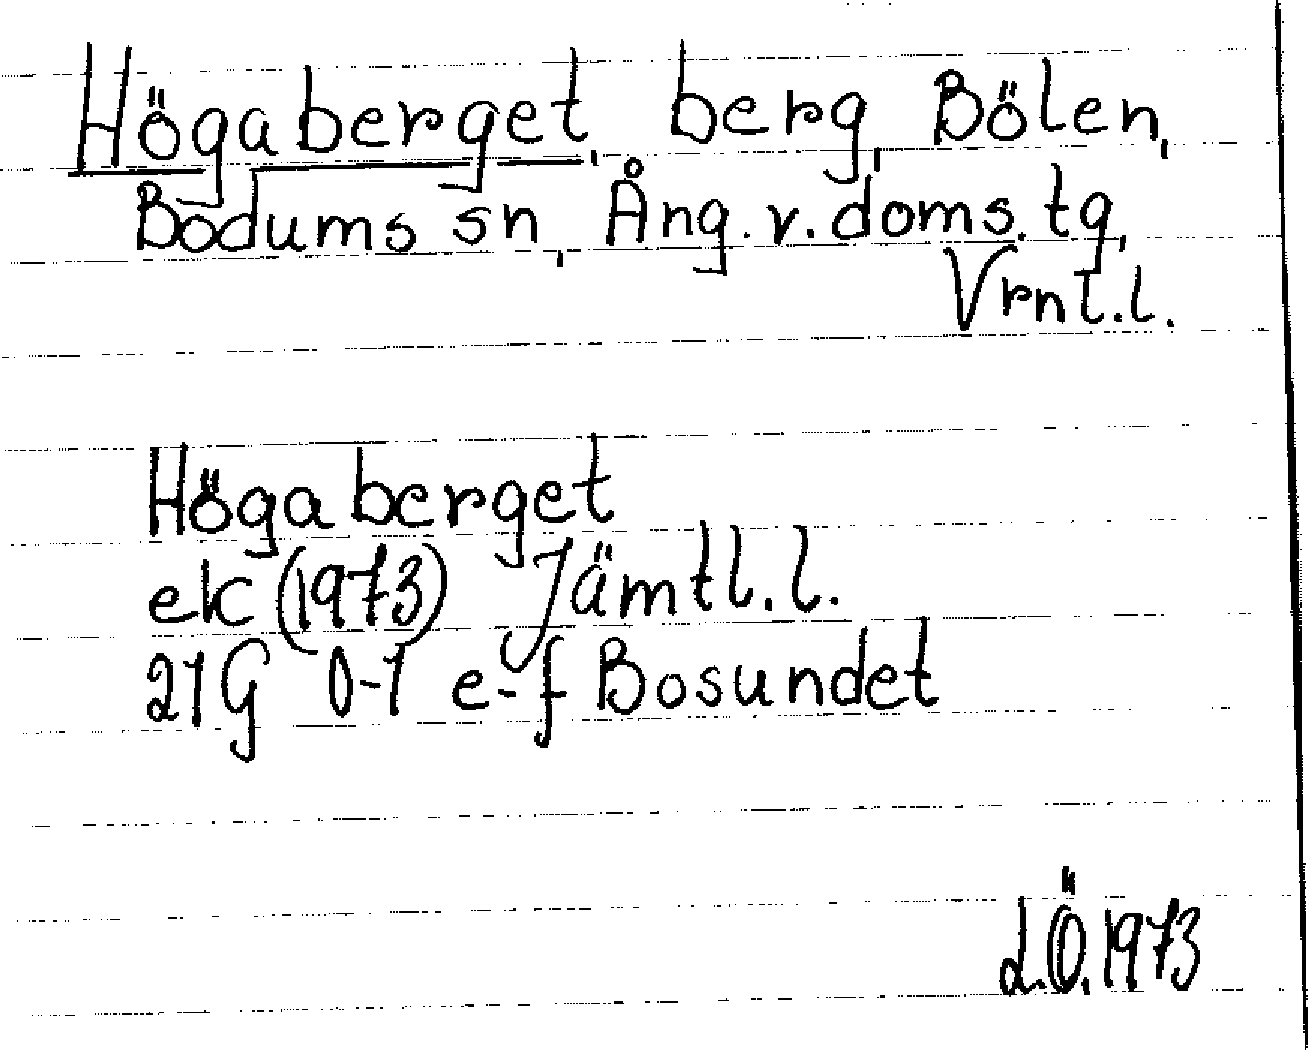 Högaberget, berg, Bölen,
Bodums sn, Ång. v. doms. tg,
Vrnl.l.
Högaberget
ek (1973) Jämtl.l.
21G 0-1 e-f Bosundet
L.Ö. 1973